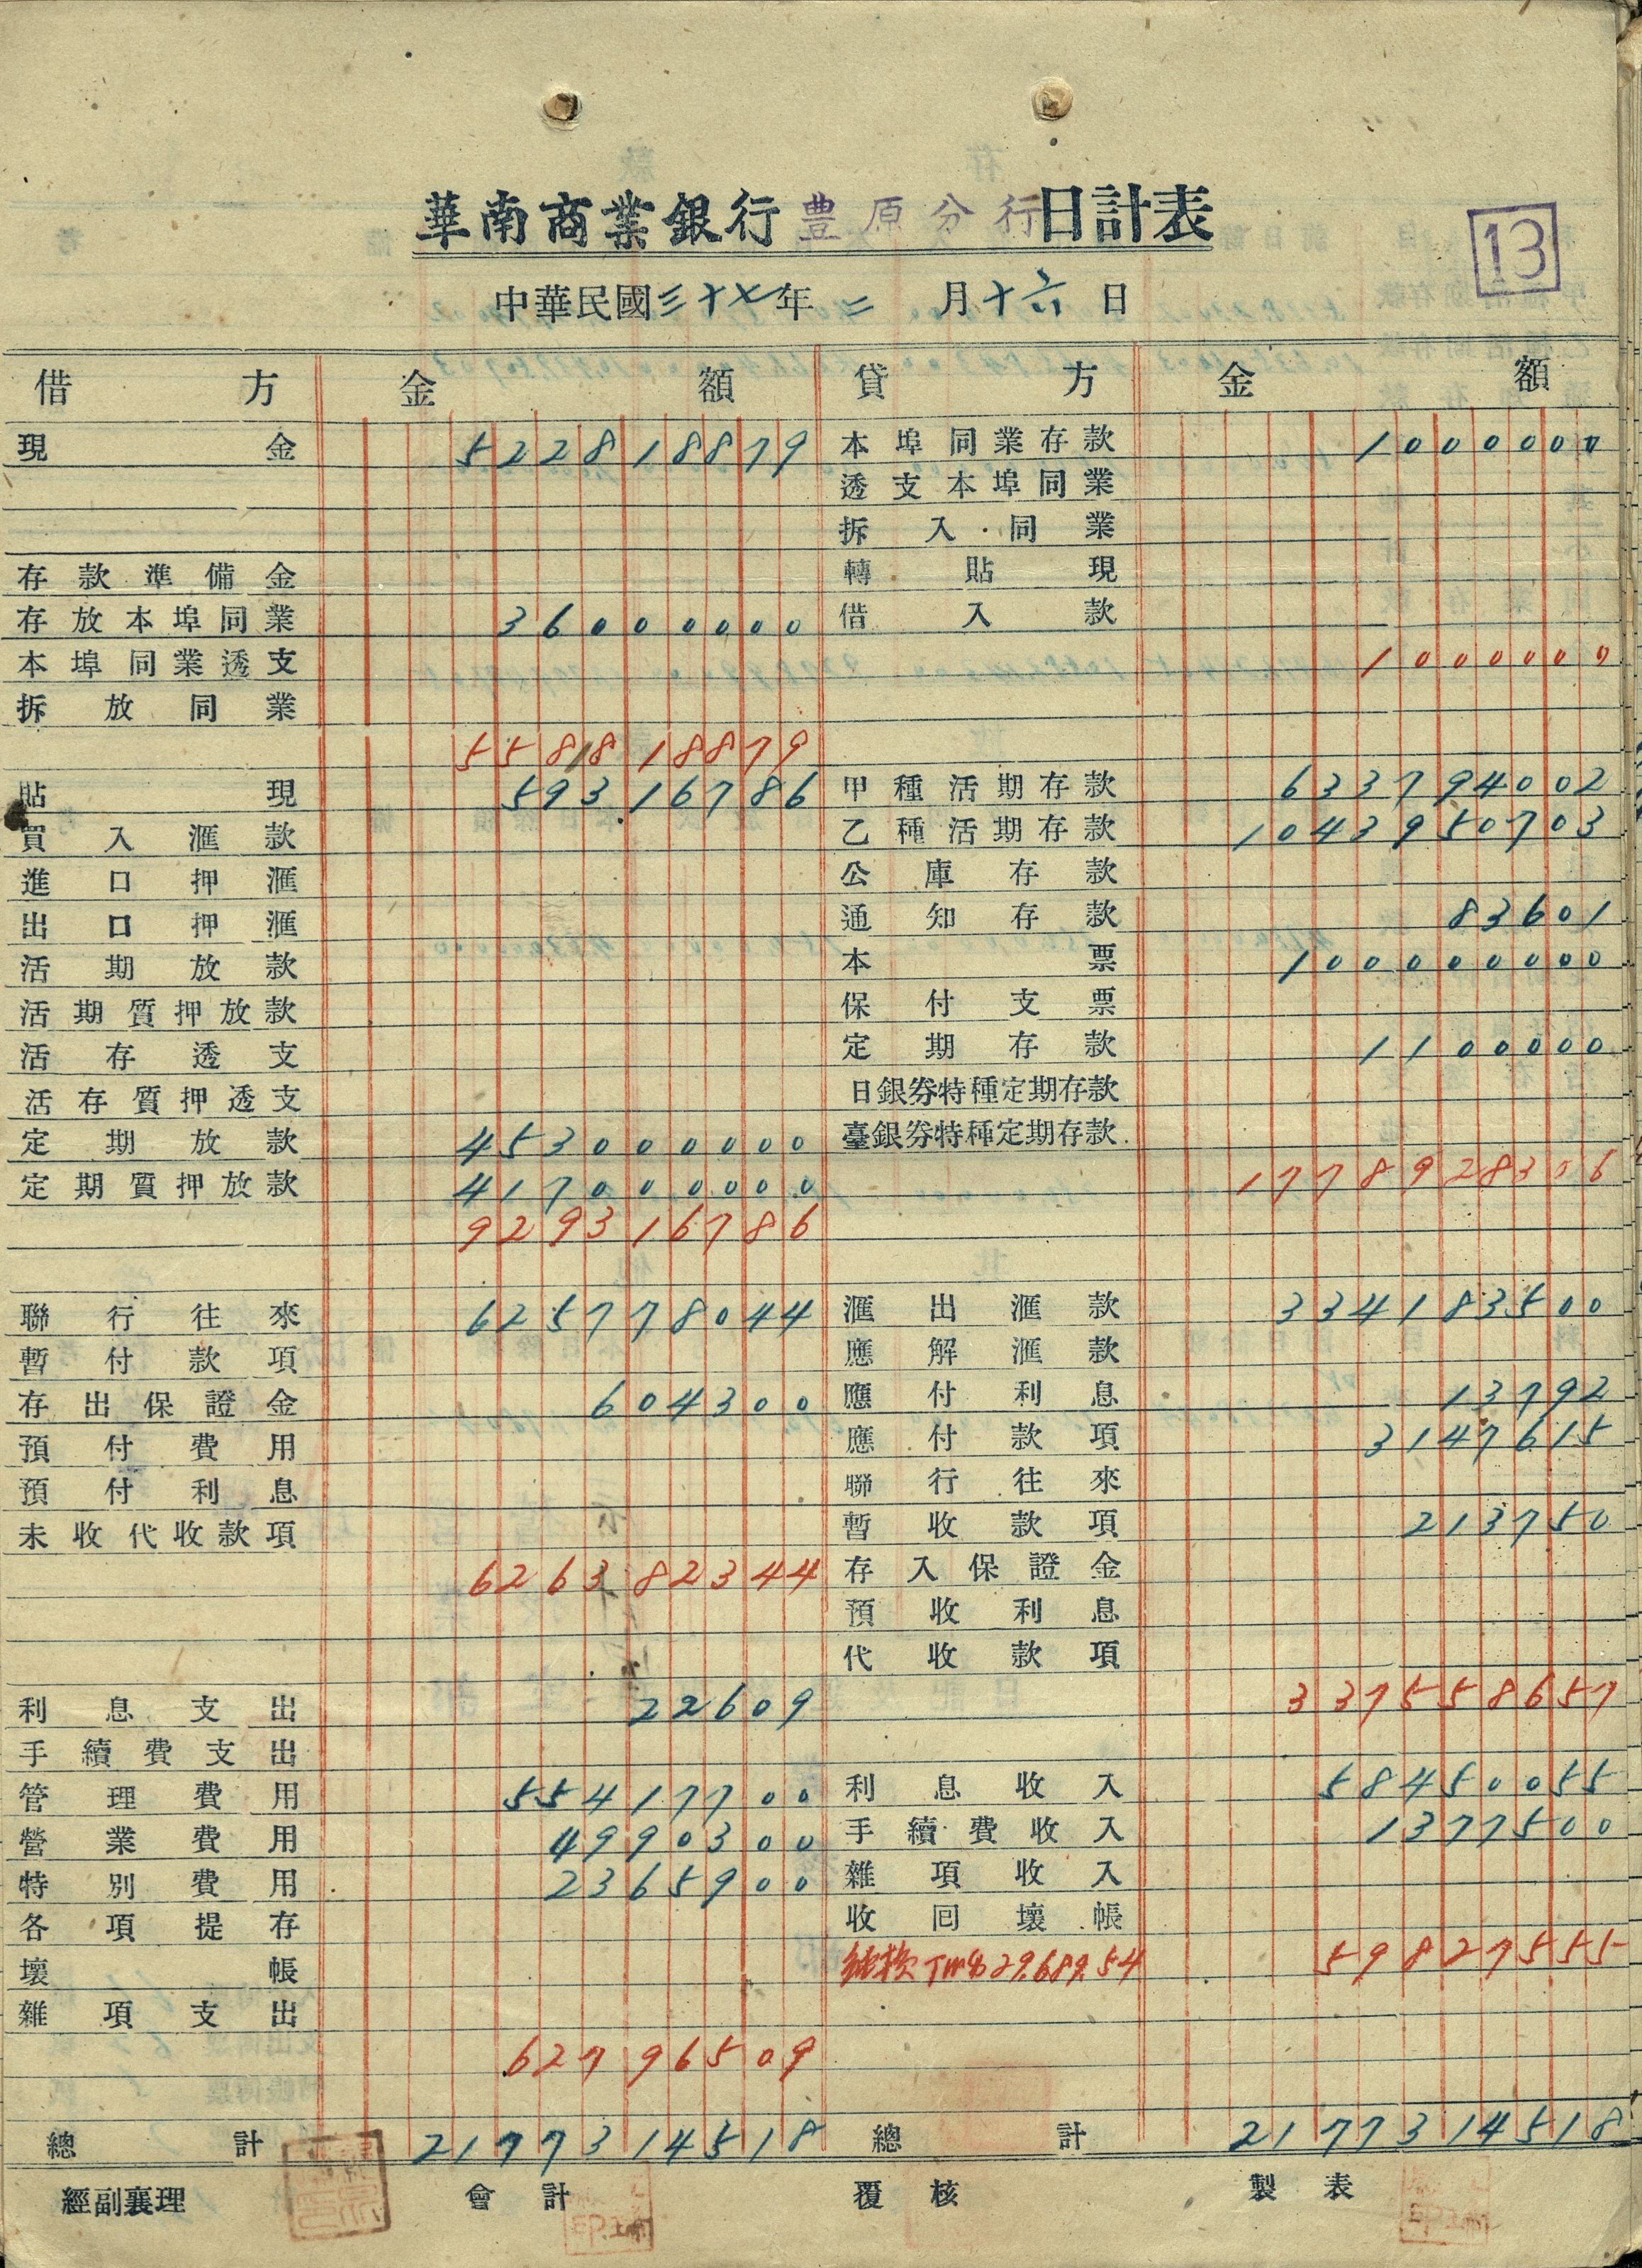 華南商業銀行豊原分行日計表
13
中華民國三十七年二月十六日
借方 金額
現金 522818879
存款準備金
存放本埠同業 36000000
本埠同業透支
拆放同業
558818879
貼現 59316786
買入滙款
進口押滙
出口押滙
活期放款
活期質押放款
活存透支
活存質押透支
定期放款 453000000
定期質押放款 417000000
929316786
聯行往來 625778044
暫付款項
存出保證金 604300
預付費用
預付利息
未收代收款項
626382344
利息支出 22609
手續費支出
管理費用 55417700
營業費用 4990300
特別費用 2365900
各項提存
壞帳
雜項支出
62796509
總計 2177314518
貸方 金額
本埠同業存款 1000000
透支本埠同業
拆入同業
轉貼現
借入款
1000000
甲種活期存款 633794002
乙種活期存款 1043950703
公庫存款
通知存款 83601
本票 100000000
保付支票
定期存款 1100000
日銀券特種定期存款
臺銀券特種定期存款
1778928306
滙出滙款 334183500
應解滙款
應付利息 13792
應付款項 3147615
聯行往來
暫收款項 213750
存入保證金
預收利息
代收款項
337558657
利息收入 58450055
手續費收入 1377500
雜項收入
收回壞帳
純損 TW$29,689.54 59827555
總計 2177314518
經副襄理 會計 覆核 製表